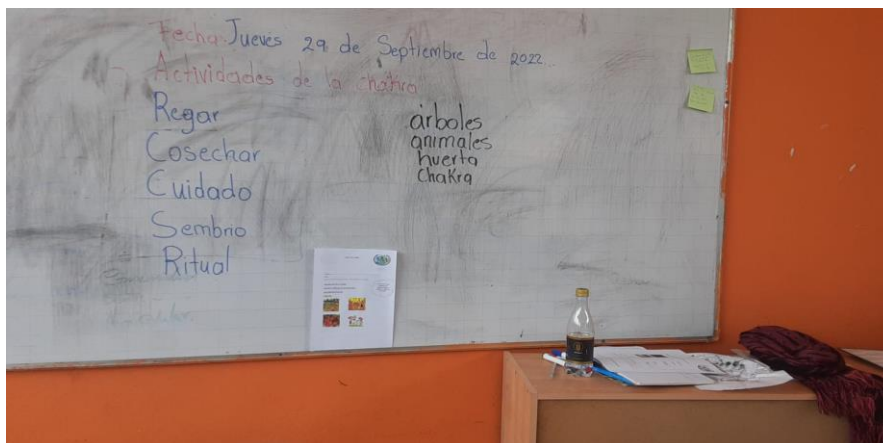 Fecha: Jueves 29 de Septiembre de 2022
Actividades de la chakra
Regar
Cosechar
Cuidado
Sembrio
Ritual
árboles
animales
huerta
Chakra